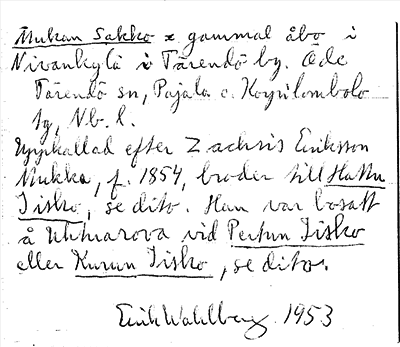 Mukan Sakko = gammal åbo i
Nivankylä i Tärendö by. Öde
Tärendö sn, Pajala o. Korpilombolo
tg, Nb. l.
Uppkallad efter Zachris Eriksson
Mukka, f. 1854, broder till Hattu
Iisko, se dito. Han var bosatt
å Uhtuarova vid Pertun Iisko
eller Kurun Iisko, se dito.
Erik Wahlberg. 1953